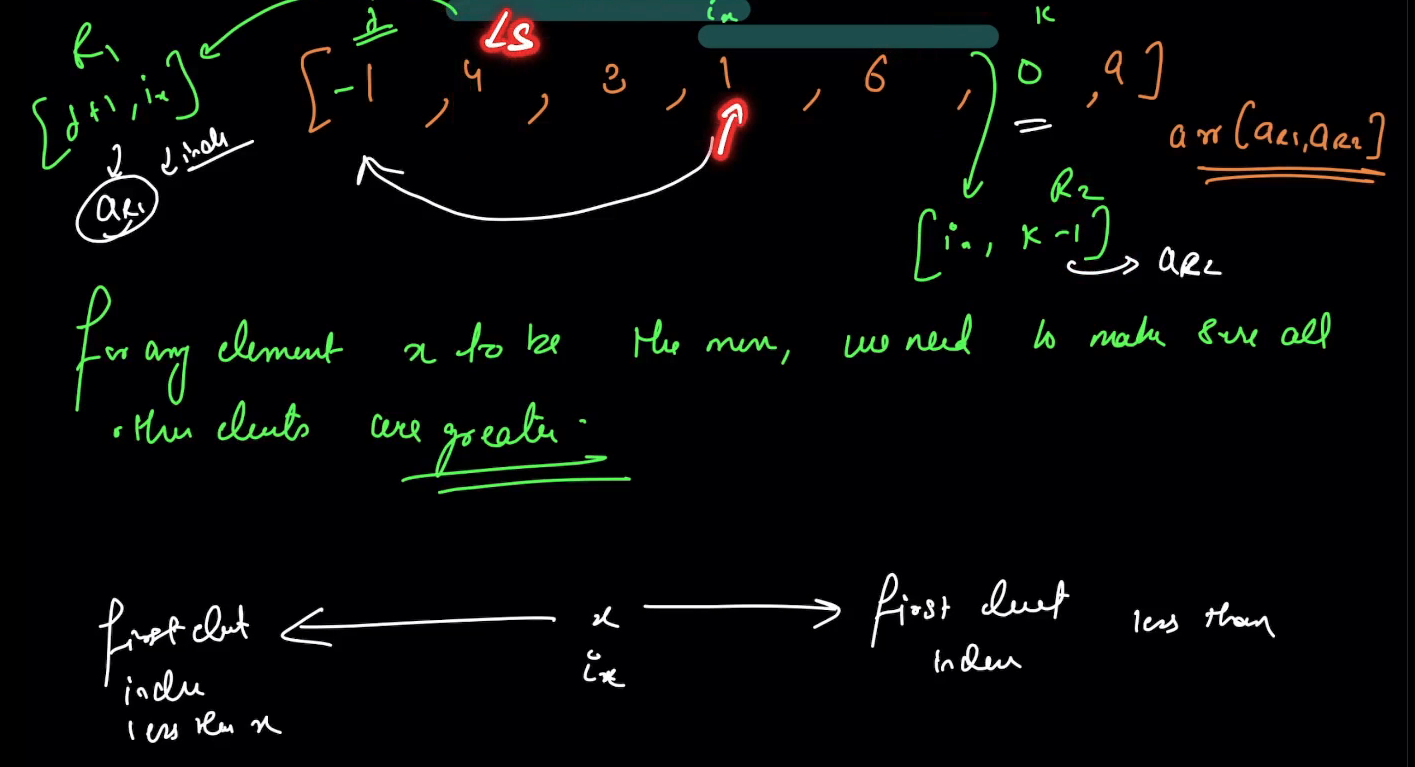 R1
[j+1, ix]
aR1
j
LS
ix
K
[-1, 4, 3, 1, 6, 0, 9]
arr[aR1, aR2]
R2
[ix, K-1]
aR2
for any element x to be the min, we need to make sure all
other elements are greater.
first elmt
index
less than x
x
ix
first elmt less than
index